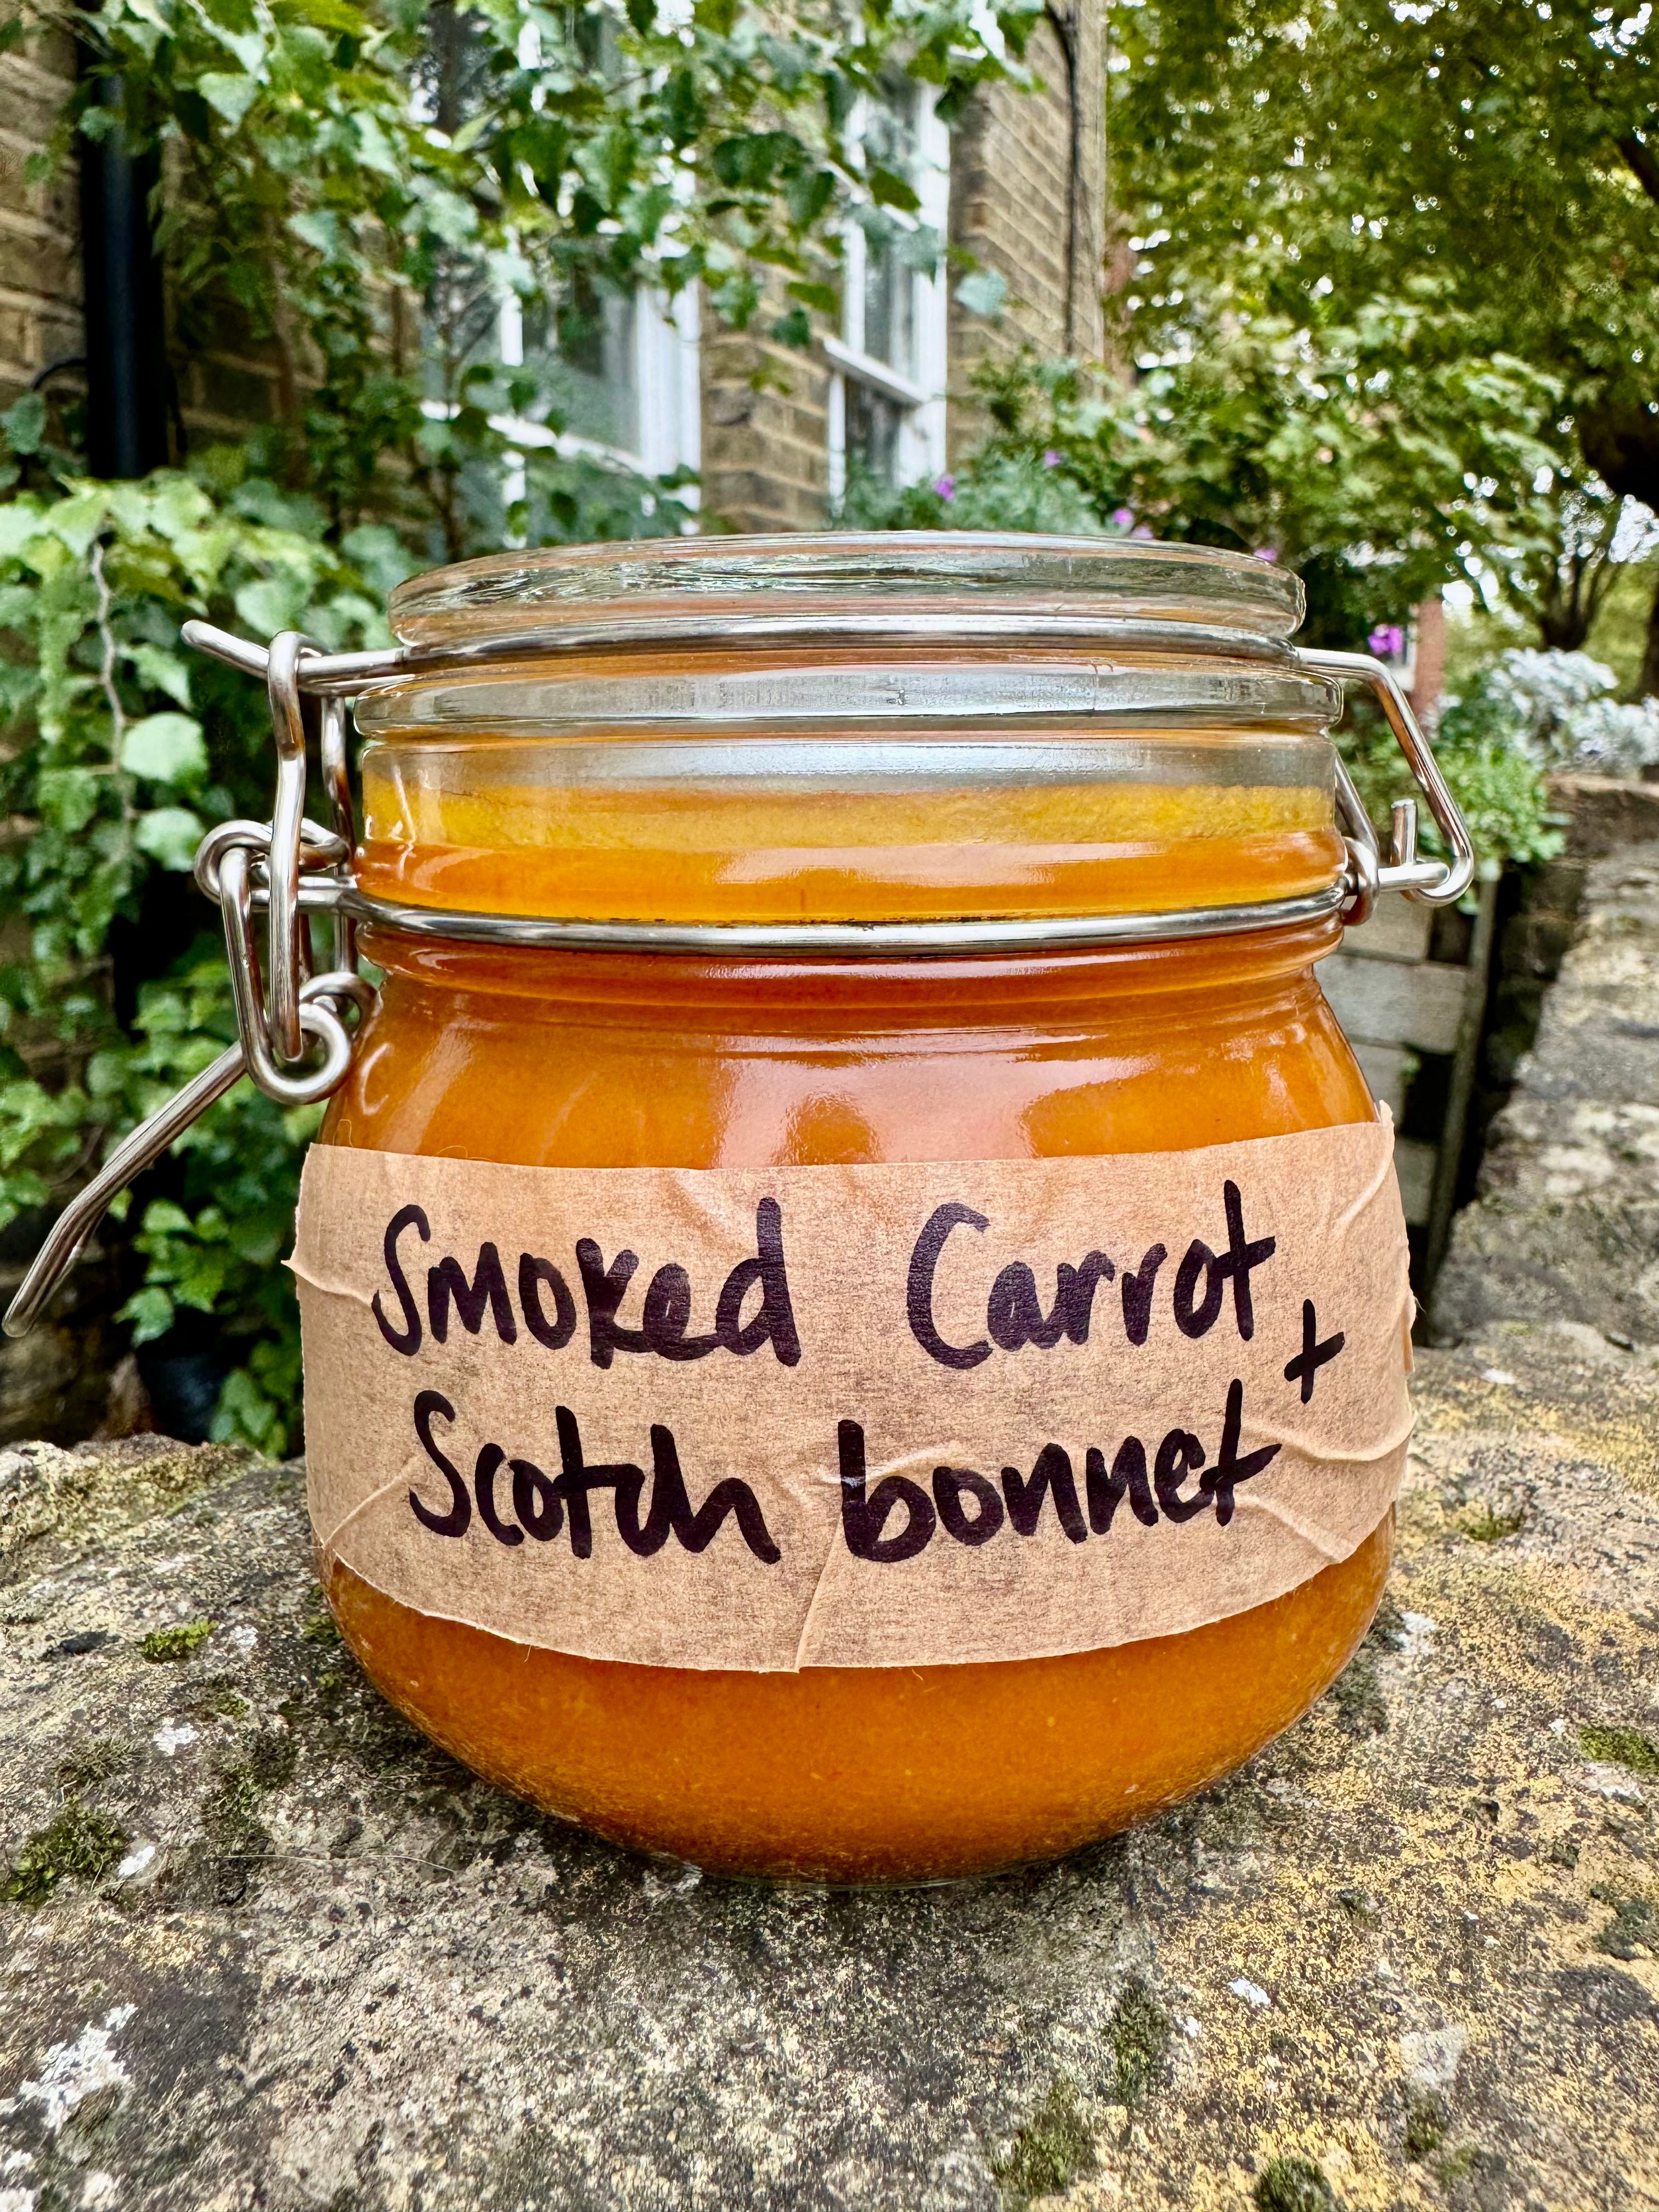 Smoked Carrot
+
Scotch bonnet